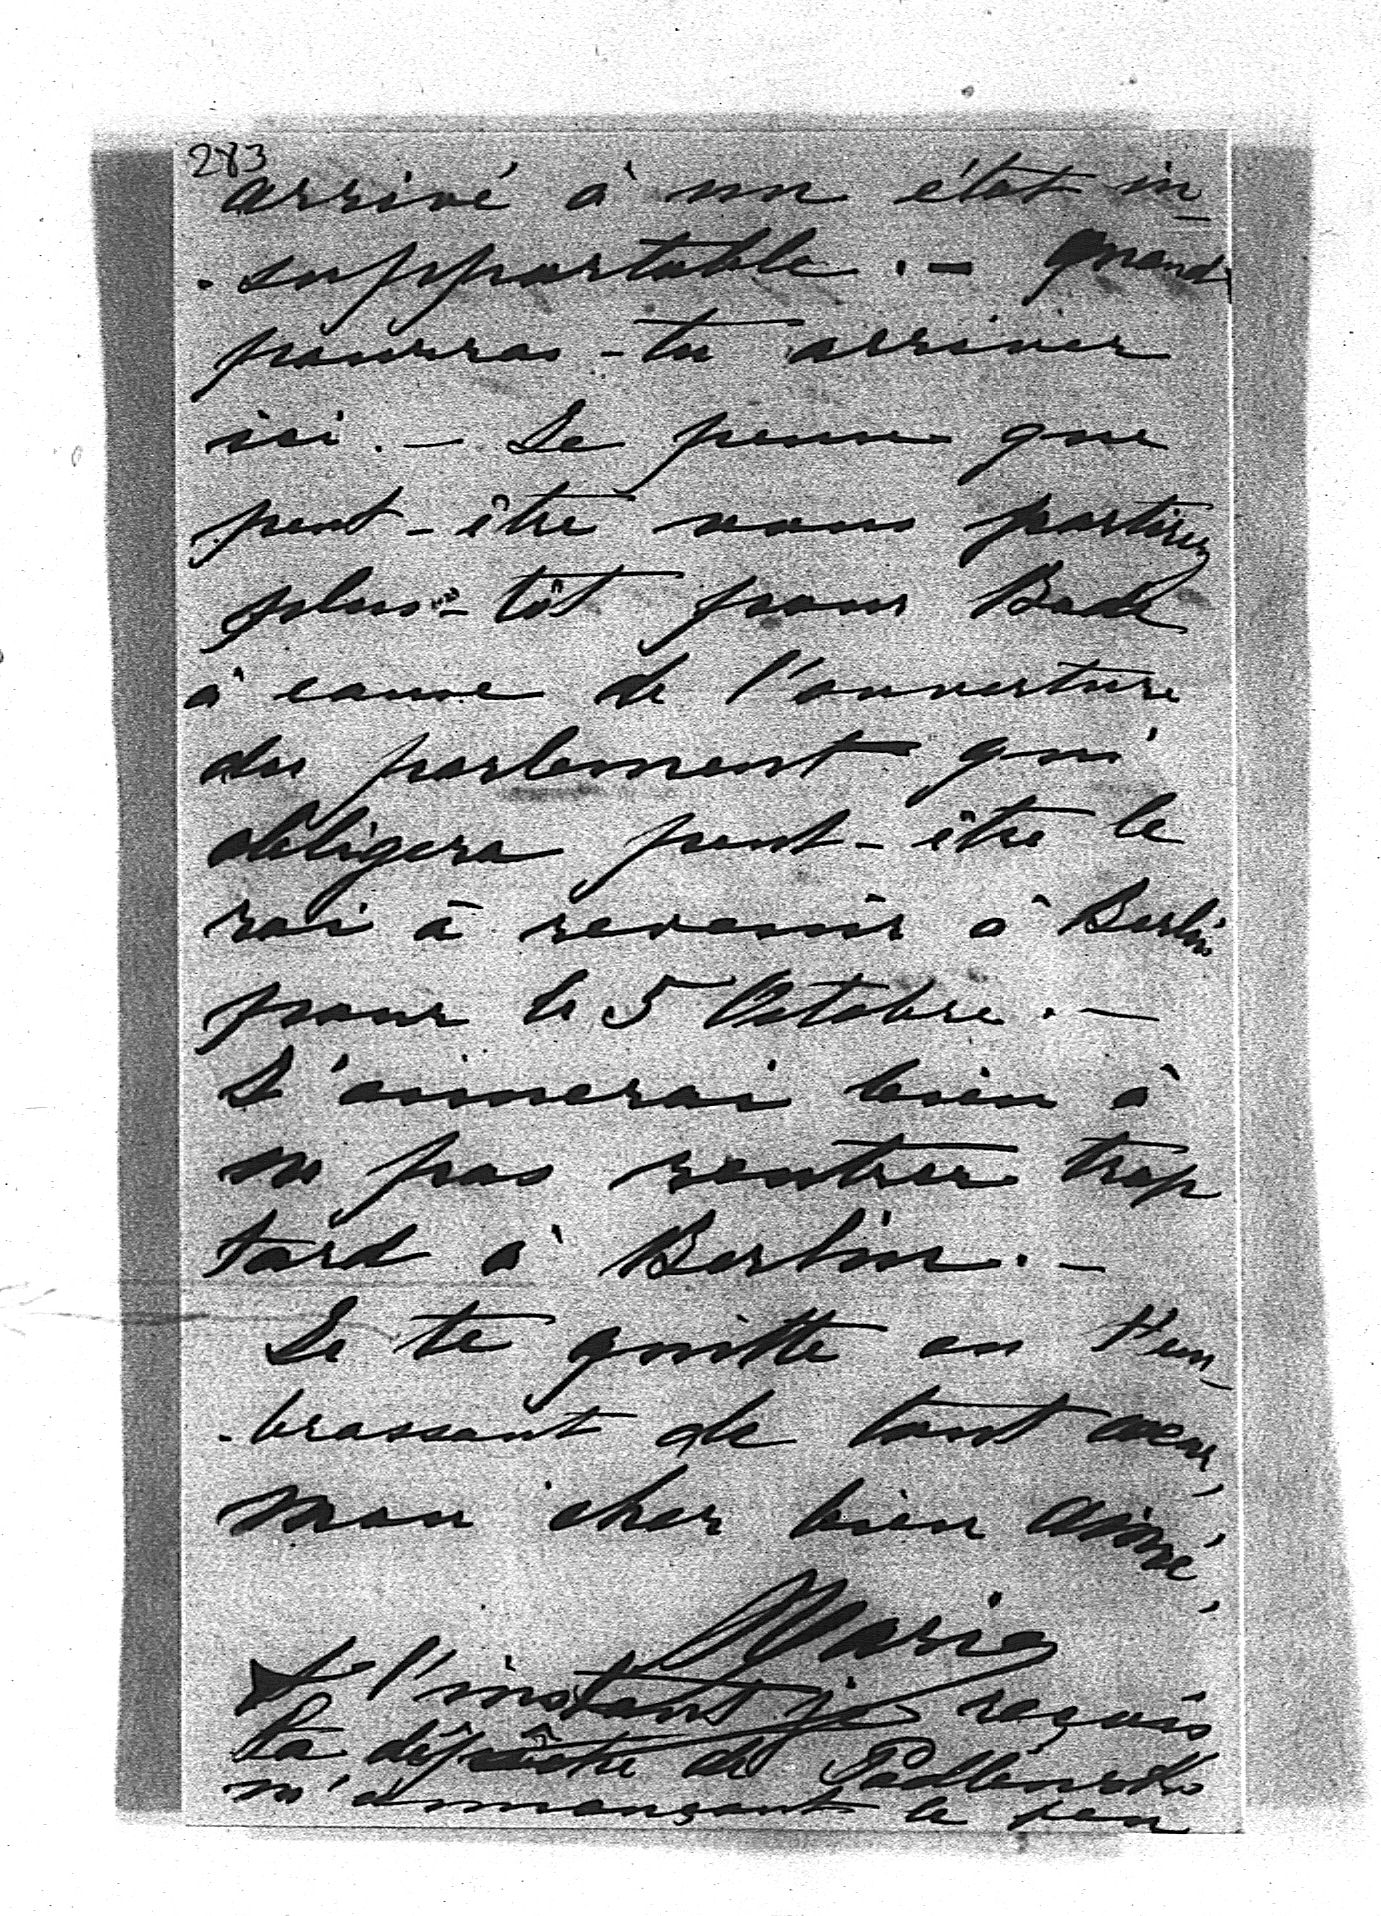 283
arrivé à un état in-
-supportable. – quand
pourras-tu arriver
ici. – Je pense que
peut-être nous partirez
plus-tôt pour Bade
à cause de l'ouverture
du parlement qui
obligera peut-être le
roi à revenir à Berlin
pour le 5 Octobre. –
J'aimerai bien à
ne pas rentrer trop
tard à Berlin. –
Je te quitte en t'em-
-brassant de tout cœur,
mon cher bien aimé,
Marie
A l'instant je reçois
ta dépêche de
m'annonçant le peu